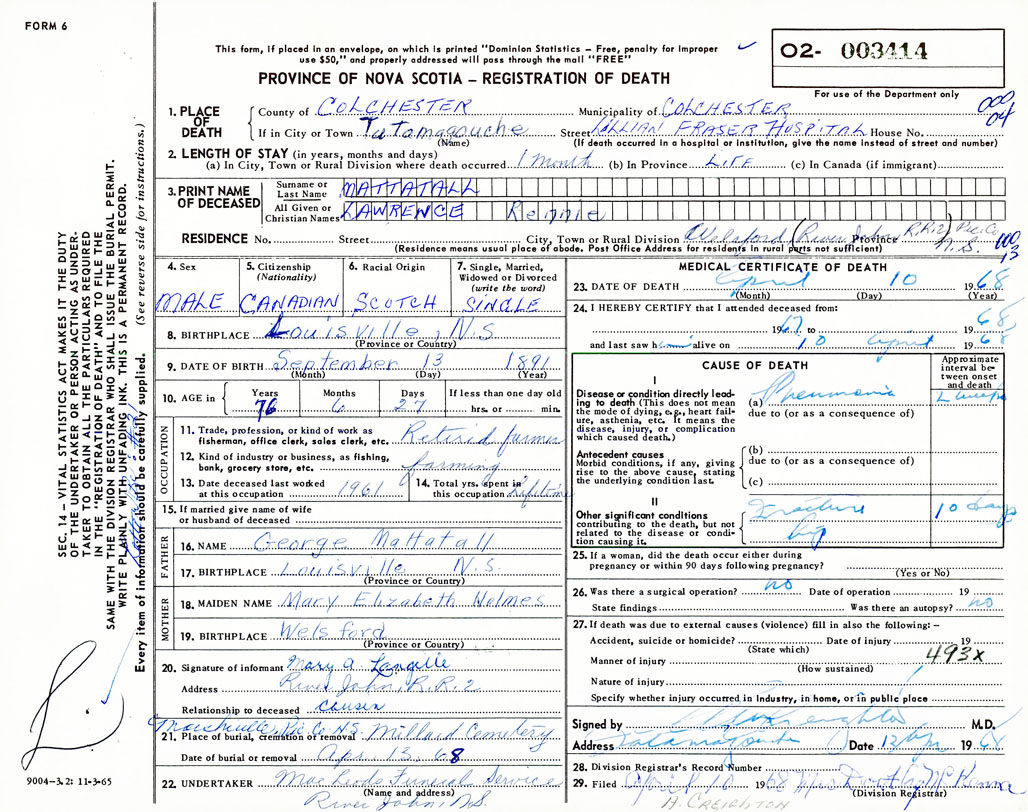 FORM 6
This form, if placed in an envelope, on which is printed "Dominion Statistics – Free, penalty for improper
use $50," and properly addressed will pass through the mail "FREE"
PROVINCE OF NOVA SCOTIA – REGISTRATION OF DEATH
O2- 003414
For use of the Department only
000
04
1. PLACE OF DEATH
County of COLCHESTER Municipality of COLCHESTER
If in City or Town Tatamagouche Street LILLIAN FRASER HOSPITAL House No.
(Name) (If death occurred in a hospital or institution, give the name instead of street and number)
2. LENGTH OF STAY (in years, months and days)
(a) In City, Town or Rural Division where death occurred 1 month (b) In Province LIFE (c) In Canada (if immigrant)
3. PRINT NAME OF DECEASED
Surname or Last Name MATTATALL
All Given or Christian Names LAWRENCE Rennie
RESIDENCE No. Street City, Town or Rural Division Welsford (River John, R.R.2) Pic. Co. Province N.S.
(Residence means usual place of abode. Post Office Address for residents in rural parts not sufficient)
000
13
4. Sex
MALE
5. Citizenship (Nationality)
CANADIAN
6. Racial Origin
SCOTCH
7. Single, Married, Widowed or Divorced (write the word)
SINGLE
8. BIRTHPLACE Louisville, N.S.
(Province or Country)
9. DATE OF BIRTH September 13 1891
(Month) (Day) (Year)
10. AGE in Years 76 Months 6 Days 27 If less than one day old hrs. or min.
OCCUPATION
11. Trade, profession, or kind of work as fisherman, office clerk, sales clerk, etc. Retired farmer
12. Kind of industry or business, as fishing, bank, grocery store, etc. farming
13. Date deceased last worked at this occupation 1961
14. Total yrs. spent in this occupation lifetime
15. If married give name of wife or husband of deceased
FATHER
16. NAME George Mattatall
17. BIRTHPLACE Louisville N.S.
(Province or Country)
MOTHER
18. MAIDEN NAME Mary Elizabeth Holmes
19. BIRTHPLACE Welsford
(Province or Country)
20. Signature of informant Mary A Langille
Address River John, R.R.2
Relationship to deceased cousin
Marshville, Pic. Co. N.S. Millard Cemetery
21. Place of burial, cremation or removal
Date of burial or removal Apr. 13, 68
22. UNDERTAKER MacLeods Funeral Service
(Name and address)
River John, N.S.
MEDICAL CERTIFICATE OF DEATH
23. DATE OF DEATH April 10 1968
(Month) (Day) (Year)
24. I HEREBY CERTIFY that I attended deceased from:
1967 to 1968,
and last saw h alive on 10 April 1968
CAUSE OF DEATH
Approximate interval between onset and death
I
Disease or condition directly leading to death (This does not mean the mode of dying, e.g., heart failure, asthenia, etc. It means the disease, injury, or complication which caused death.)
(a) Pneumonia
due to (or as a consequence of)
Antecedent causes
Morbid conditions, if any, giving rise to the above cause, stating the underlying condition last.
(b)
due to (or as a consequence of)
(c)
II
Other significant conditions contributing to the death, but not related to the disease or condition causing it.
Fracture hip 10 days
25. If a woman, did the death occur either during
pregnancy or within 90 days following pregnancy?
(Yes or No)
26. Was there a surgical operation? no Date of operation 19
State findings Was there an autopsy? no
27. If death was due to external causes (violence) fill in also the following: –
Accident, suicide or homicide? Date of injury 19
(State which)
493x
Manner of injury
(How sustained)
Nature of injury
Specify whether injury occurred in industry, in home, or in public place
Signed by M.D.
Address Tatamagouche Date 12 Apr. 19
28. Division Registrar's Record Number
29. Filed April 10 1968 Mrs Dorothy McKenna
(Division Registrar)
H. CREIGHTON
SEC. 14 – VITAL STATISTICS ACT MAKES IT THE DUTY
OF THE UNDERTAKER OR PERSON ACTING AS UNDER-
TAKER TO OBTAIN ALL THE PARTICULARS REQUIRED
IN THE "REGISTRATION OF DEATH" AND TO FILE THE
SAME WITH THE DIVISION REGISTRAR WHO SHALL ISSUE THE BURIAL PERMIT.
WRITE PLAINLY WITH UNFADING INK. THIS IS A PERMANENT RECORD.
Every item of information should be carefully supplied. (See reverse side for instructions.)
9004–3.2: 11-3-65